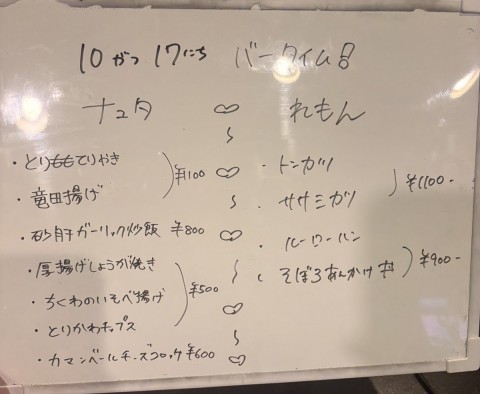 10がつ 17にち バータイム
ナュタ
れもん
・とりももてりやき
・竜田揚げ
¥1100
・砂肝ガーリック炒飯 ¥800
・厚揚げしょうが焼き
・ちくわのいそべ揚げ
・とりかわチップス
¥500
・カマンベールチーズコロッケ ¥600
・トンカツ
・ササミカツ
¥1100-
・ルーローハン
・そぼろあんかけ丼
¥900-